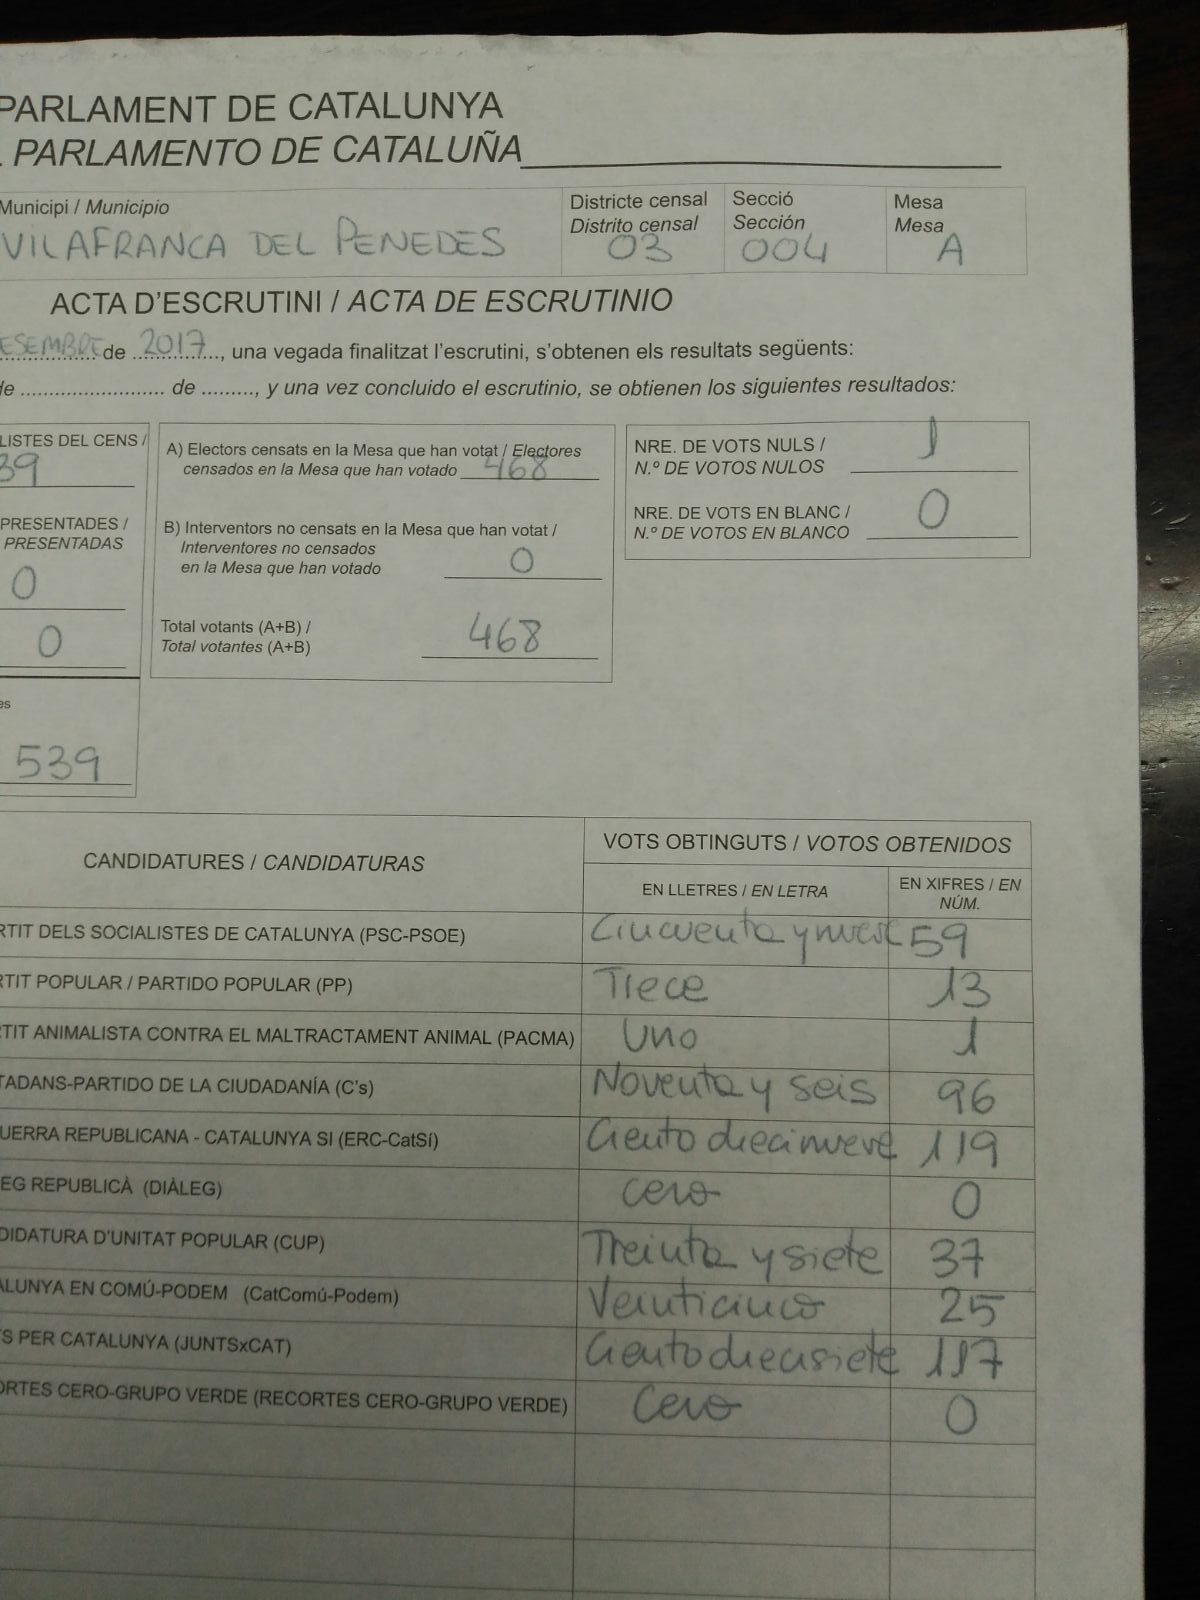 PARLAMENT DE CATALUNYA
PARLAMENTO DE CATALUÑA
Municipi / Municipio
VILAFRANCA DEL PENEDES
Districte censal
Distrito censal
03
Secció
Sección
004
Mesa
Mesa
A
ACTA D'ESCRUTINI / ACTA DE ESCRUTINIO
ESEMBRE de 2017, una vegada finalitzat l'escrutini, s'obtenen els resultats següents:
de ........................ de ........., y una vez concluido el escrutinio, se obtienen los siguientes resultados:
LISTES DEL CENS /
39
PRESENTADES /
PRESENTADAS
0
0
es
539
A) Electors censats en la Mesa que han votat / Electores
censados en la Mesa que han votado 468
B) Interventors no censats en la Mesa que han votat /
Interventores no censados
en la Mesa que han votado 0
Total votants (A+B) /
Total votantes (A+B) 468
NRE. DE VOTS NULS /
N.º DE VOTOS NULOS 1
NRE. DE VOTS EN BLANC /
N.º DE VOTOS EN BLANCO 0
CANDIDATURES / CANDIDATURAS
VOTS OBTINGUTS / VOTOS OBTENIDOS
EN LLETRES / EN LETRA
EN XIFRES / EN
NÚM.
RTIT DELS SOCIALISTES DE CATALUNYA (PSC-PSOE) Cincuenta y nueve 59
RTIT POPULAR / PARTIDO POPULAR (PP) Trece 13
RTIT ANIMALISTA CONTRA EL MALTRACTAMENT ANIMAL (PACMA) Uno 1
TADANS-PARTIDO DE LA CIUDADANÍA (C's) Noventa y seis 96
UERRA REPUBLICANA - CATALUNYA SI (ERC-CatSí) Ciento diecinueve 119
EG REPUBLICÀ (DIÀLEG) Cero 0
DIDATURA D'UNITAT POPULAR (CUP) Treinta y siete 37
ALUNYA EN COMÚ-PODEM (CatComú-Podem) Veinticinco 25
S PER CATALUNYA (JUNTSxCAT) Ciento diecisiete 117
ORTES CERO-GRUPO VERDE (RECORTES CERO-GRUPO VERDE) Cero 0